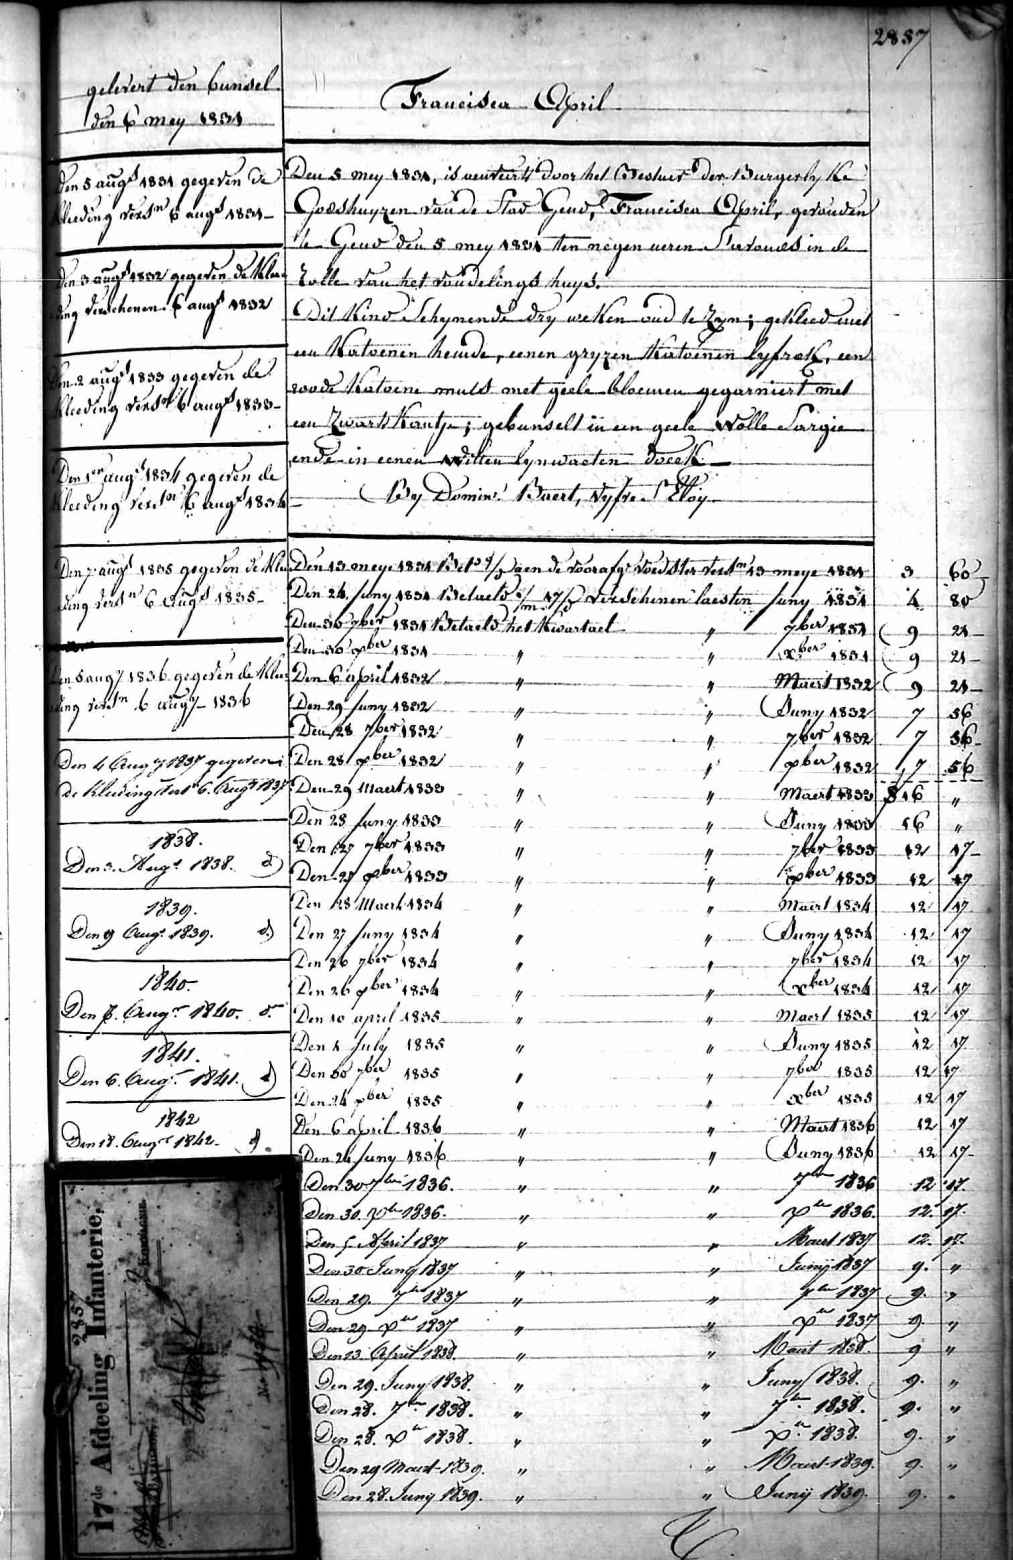 2857
gelevert den bunsel
den 6 mey 1831
Francisca April
Den 5 aug.t 1831 gegeven de
kleeding versn 6 augt 1831
Den 3 augt 1832 gegeven de klee
ding verschenen 6 augt 1832
Den 2 augt 1833 gegeven de
kleeding versn 6 augt 1833
Den 1en augt 1834 gegeven de
kleeding versn 6 augt 1834
Den 7 augt 1835 gegeven de klee
ding versn 6 augt 1835
Den 5 aug 1836 gegeven de klee
ding versn 6 aug 1836
Den 4 Aug 1837 gegeven
de kleeding versn 6 Augt 1837
1838.
Den 3. Augt 1838. d)
1839.
Den 9 Augt 1839. d)
1840.
Den 7. Augt 1840. d.
1841.
Den 6. Augt 1841. d)
1842
Den 18. Augt 1842. d.
Den 5 mey 1831, is aenveirt door het Bestuer der Burgerlyke
Godshuyzen van de Stad Gend, Francisca April, gevonden
te Gend den 5 mey 1831 ten negen uren s'avonds in de
rolle van het vondelings huys.
Dit kind schynende dry weken oud te zyn; gekleed met
een katoenen hemde, eenen gryzen katoenen lyfrok, een
roode katoene muts met geele bloemen gegarniert met
een zwart kantje; gebunselt in een geele wolle sargie
ende in eenen witten lynwaeten doeek
By Domin. Baert, vyfve St Eloy
Den 13 meye 1831 Bett aen de voorafge voedster versn 13 meye 1831 3 60
Den 24 juny 1831 Betaeld verschenen laesten juny 1831 4 80
Den 30 7ber 1831 Betaeld het kwartael " 7ber 1831 9 21
Den 30 xber 1831 " " xber 1831 9 21
Den 6 april 1832 " " Maert 1832 9 21
Den 29 juny 1832 " " Juny 1832 7 56
Den 28 7ber 1832 " " 7ber 1832 7 56
Den 28 xber 1832 " " xber 1832 7 56
Den 29 Maert 1833 " " Maert 1833 16 "
Den 28 juny 1833 " " Juny 1833 16 "
Den 27 7ber 1833 " " 7ber 1833 12 17
Den 27 xber 1833 " " xber 1833 12 17
Den 28 Maert 1834 " " Maert 1834 12 17
Den 27 juny 1834 " " Juny 1834 12 17
Den 26 7ber 1834 " " 7ber 1834 12 17
Den 26 xber 1834 " " xber 1834 12 17
Den 10 april 1835 " " Maert 1835 12 17
Den 1 july 1835 " " Juny 1835 12 17
Den 30 7ber 1835 " " 7ber 1835 12 17
Den 24 xber 1835 " " xber 1835 12 17
Den 6 april 1836 " " Maert 1836 12 17
Den 24 juny 1836 " " Juny 1836 12 17
Den 30 7ber 1836. " " 7ber 1836 12 17.
Den 30. xber 1836. " " xber 1836. 12. 17.
Den 5 April 1837 " " Maert 1837 12. 17.
Den 30 Juny 1837 " " Junij 1837 9. "
Den 29. 7ber 1837 " " 7ber 1837 9. "
Den 29 xber 1837 " " xber 1837 9. "
Den 13 April 1838. " " Maert 1838. 9 "
Den 29. Juny 1838. " " Juny 1838. 9. "
Den 28. 7ber 1838. " " 7ber 1838. 9. "
Den 28. xber 1838. " " xber 1838. 9. "
Den 29 Maert 1839. " " Maert 1839. 9. "
Den 28 Junij 1839. " " Junij 1839. 9. "
2857
17de Afdeeling Infanterie,